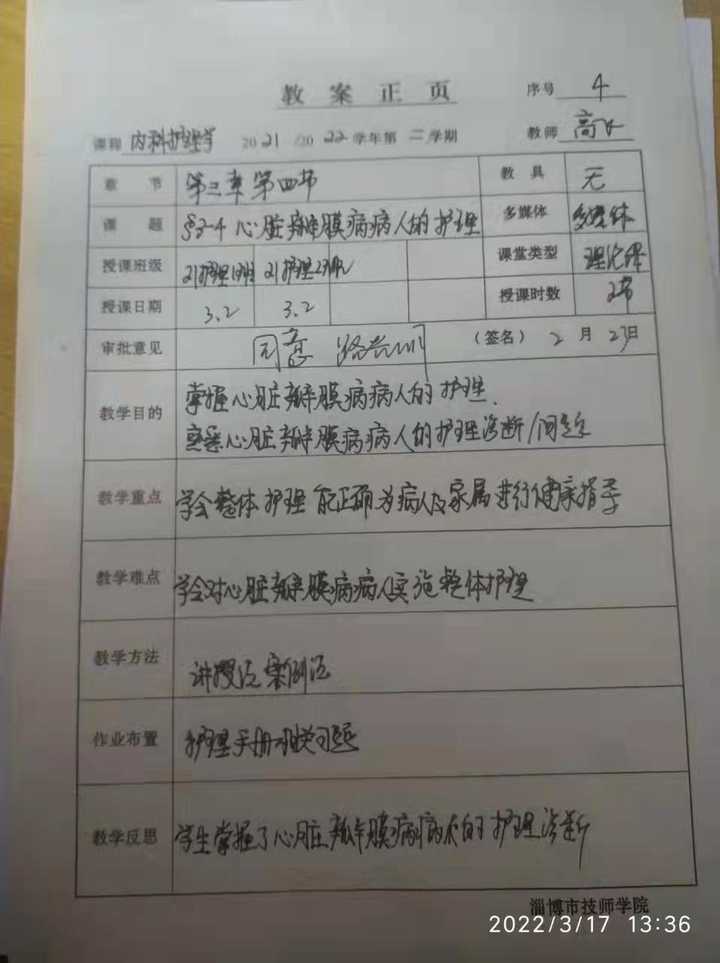 教案正页 序号 4
课程 内科护理学 2021/2022学年第二学期 教师 高
章节 第三章 第四节 教具 无
课题 §3-4 心脏瓣膜病病人的护理 多媒体 多媒体
授课班级 21护理1班 21护理2班 课堂类型 理论课
授课日期 3.2 3.2 授课时数 2节
审批意见 同意 (签名) 2月23日
教学目的 掌握心脏瓣膜病病人的护理.
熟悉心脏瓣膜病病人的护理诊断/问题
教学重点 学会整体护理 能正确为病人及家属进行健康指导
教学难点 学会对心脏瓣膜病病人实施整体护理
教学方法 讲授法 案例法
作业布置 护理手册 相关习题
教学反思 学生掌握了心脏瓣膜病病人的护理诊断
淄博市技师学院
2022/3/17 13:36